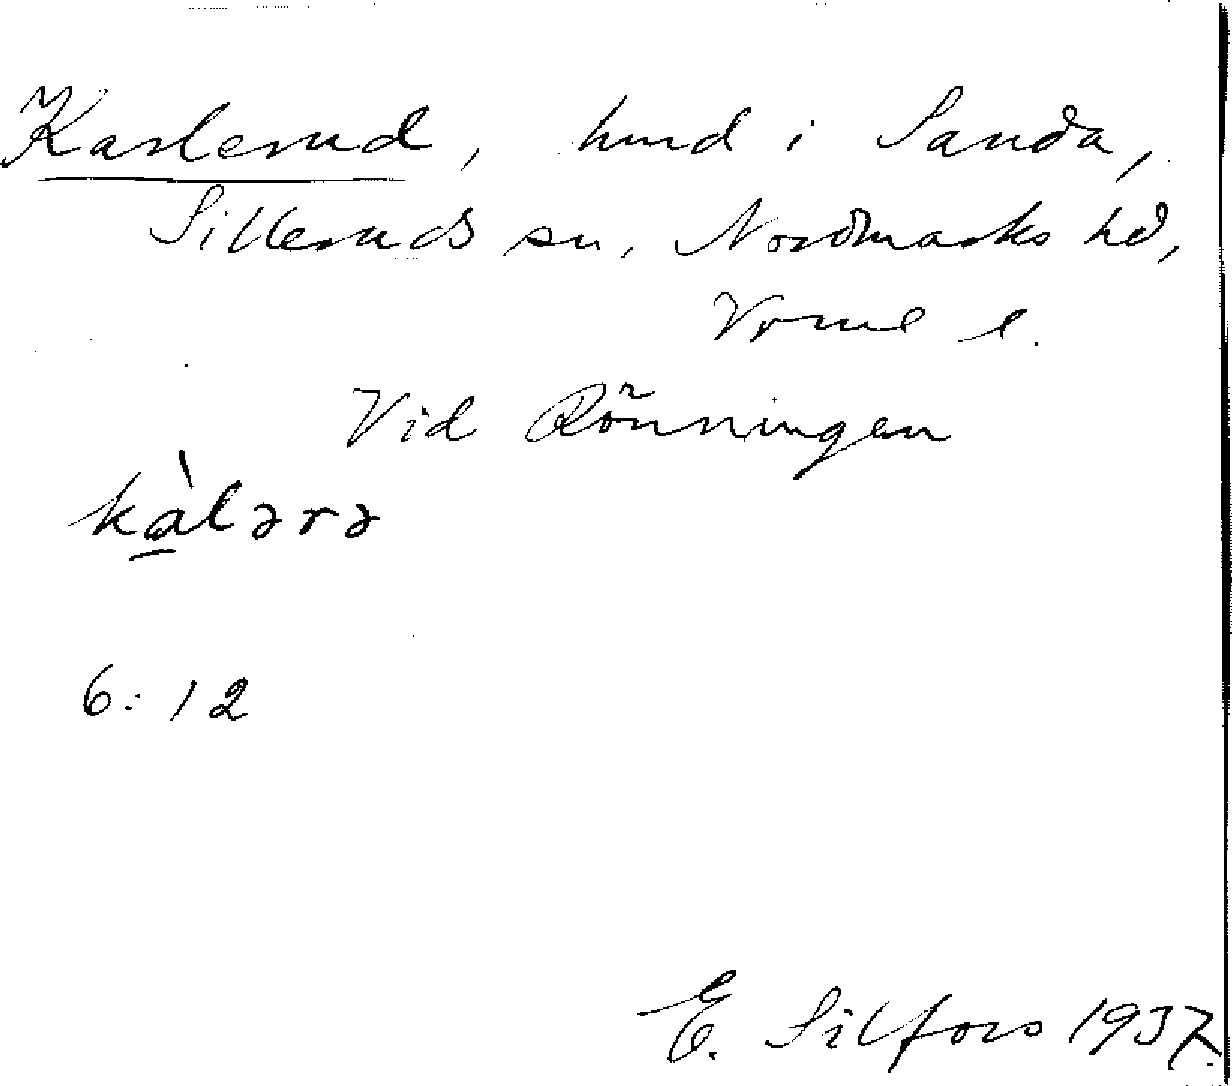 Karlerud, lund i Sanda,
Silleruds sn, Nordmarks hd,
Vrml l.
Vid Rönningen
kàlərə
6:12
E. Silfors 1937.